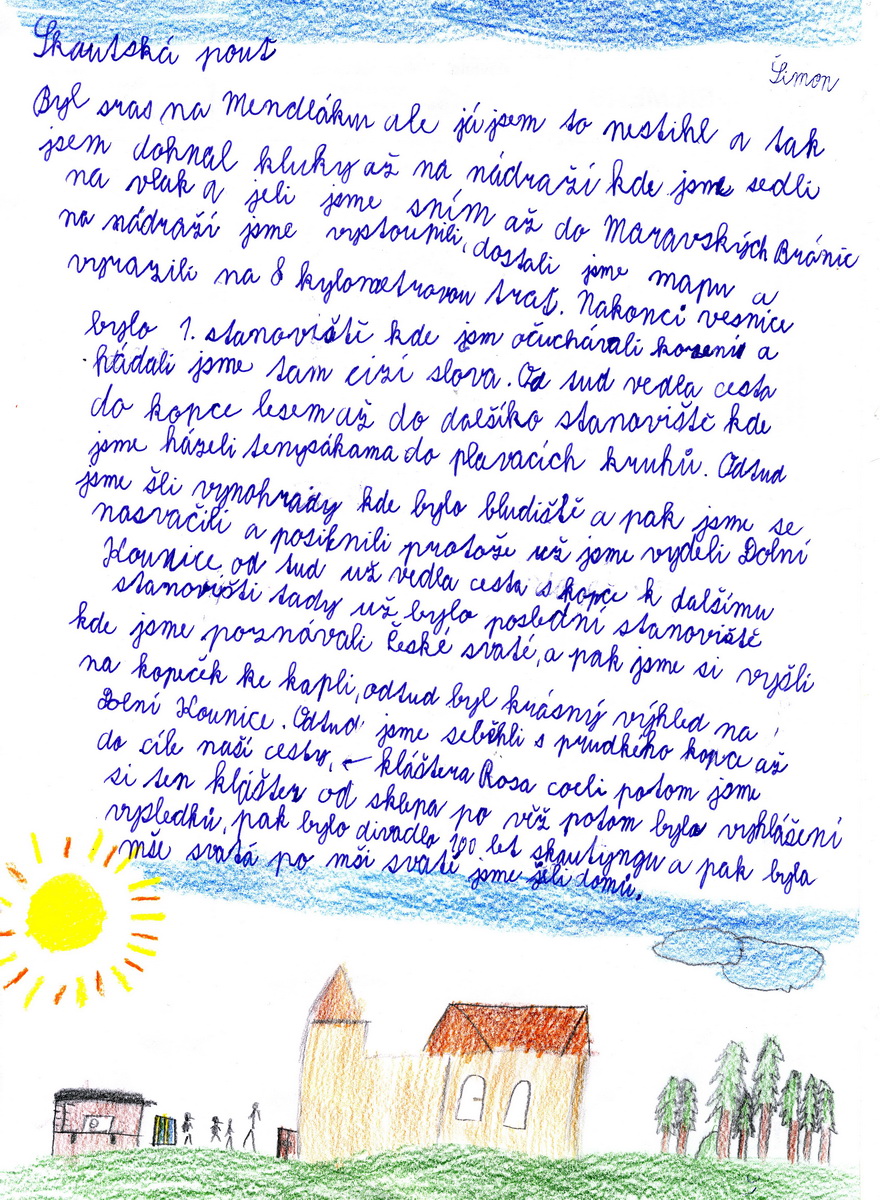 Skautská pouť
Šimon
Byl sraz na Mendláku ale já jsem to nestihl a tak
jsem dohnal kluky až na nádraží kde jsme sedli
na vlak a jeli jsme sním až do Maravských Bránic
na nádraží jsme vystoupili, dostali jsme mapu a
vyrazili na 8 kylometrovou trať. Nakonci vesnice
bylo 1. stanoviště kde jsm očuchávali koření a
hádali jsme tam cizí slova. Od tud vedla cesta
do kopce lesem až do dalšího stanoviště kde
jsme házeli tenysákama do plavacích kruhů. Odtud
jsme šli vynohrady kde bylo bludiště a pak jsme se
nasvačili a posilnili protože už jsme vyděli Dolní
Kounice od tud už vedla cesta s kopce k dalšímu
stanovišti tady už bylo poslední stanoviště
kde jsme poznávali České svaté, a pak jsme si vyšli
na kopeček ke kapli, odtud byl krásný výhled na
Dolní Kounice. Odtud jsme seběhli s prudkého kopce až
do cíle naší cesty, kláštera Rosa coeli potom jsme
si ten klášter od sklepa po věž potom bylo vyhlášení
vysledků, pak bylo divadlo 100 let skautyngu a pak byla
mše svatá po mši svaté jsme jeli domů.